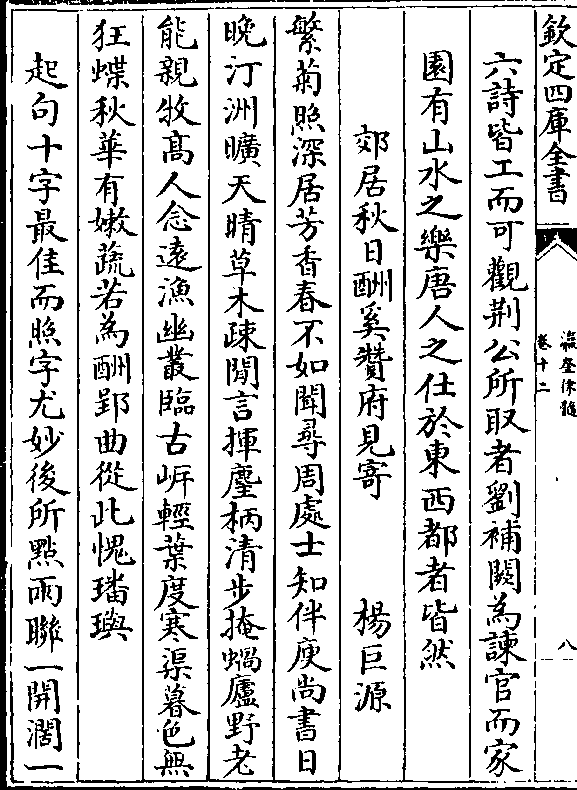 欽定四庫全書
瀛奎律髓
卷十二
八
六詩皆工而可觀荆公所取者劉補闕為諫官而家
園有山水之樂唐人之仕於東西都者皆然
郊居秋日酬奚贊府見寄 楊巨源
繁菊照深居芳香春不如聞尋周處士知伴庾尚書日
晚汀洲曠天晴草木疎閒言揮麈柄清步掩蝸廬野老
能親牧髙人念逺漁幽叢臨古岸輕葉度寒渠暮色無
狂蝶秋華有嫩蔬若為酬郢曲從此愧璠璵
起句十字最佳而照字尤妙後所點兩聯一開濶一